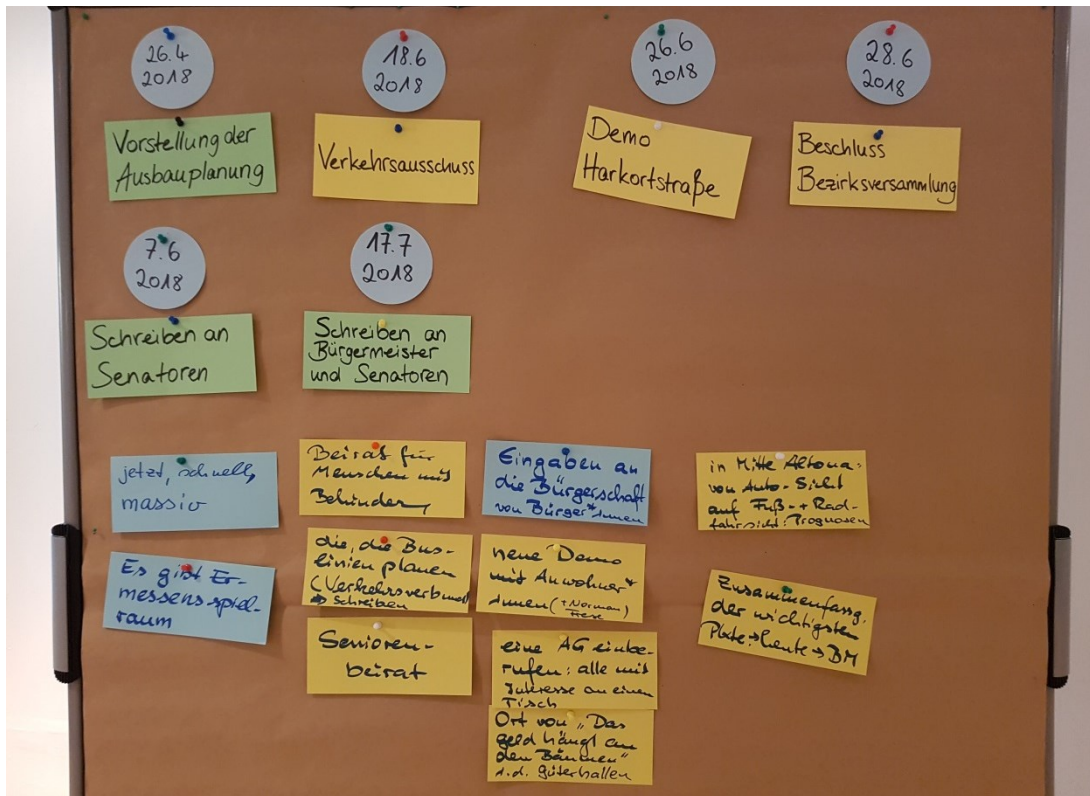 26.4
2018
Vorstellung der
Ausbauplanung
18.6
2018
Verkehrsausschuss
26.6
2018
Demo
Harkortstraße
28.6
2018
Beschluss
Bezirksversammlung
7.6
2018
Schreiben an
Senatoren
17.7
2018
Schreiben an
Bürgermeister
und Senatoren
jetzt, schnell,
massiv
Es gibt Er-
messensspiel-
raum
Beirat für
Menschen mit
Behinder,
die, die Bus-
linien planen
(Verkehrsverbund
→ schreiben
Senioren-
beirat
Eingaben an
die Bürgerschaft
von Bürger*innen
neue Demo
mit Anwohner*
innen (+ Norman)
eine AG einbe-
rufen: alle mit
Interesse an einen
Tisch
Ort von „Das
Geld hängt an
den Bäumen"
i.d. Güterhallen
in Mitte Altona:
von Auto-Sicht
auf Fuß- + Rad-
fahrsicht: Prognosen
Zusammenfassg.
der wichtigsten
→ heute → BM